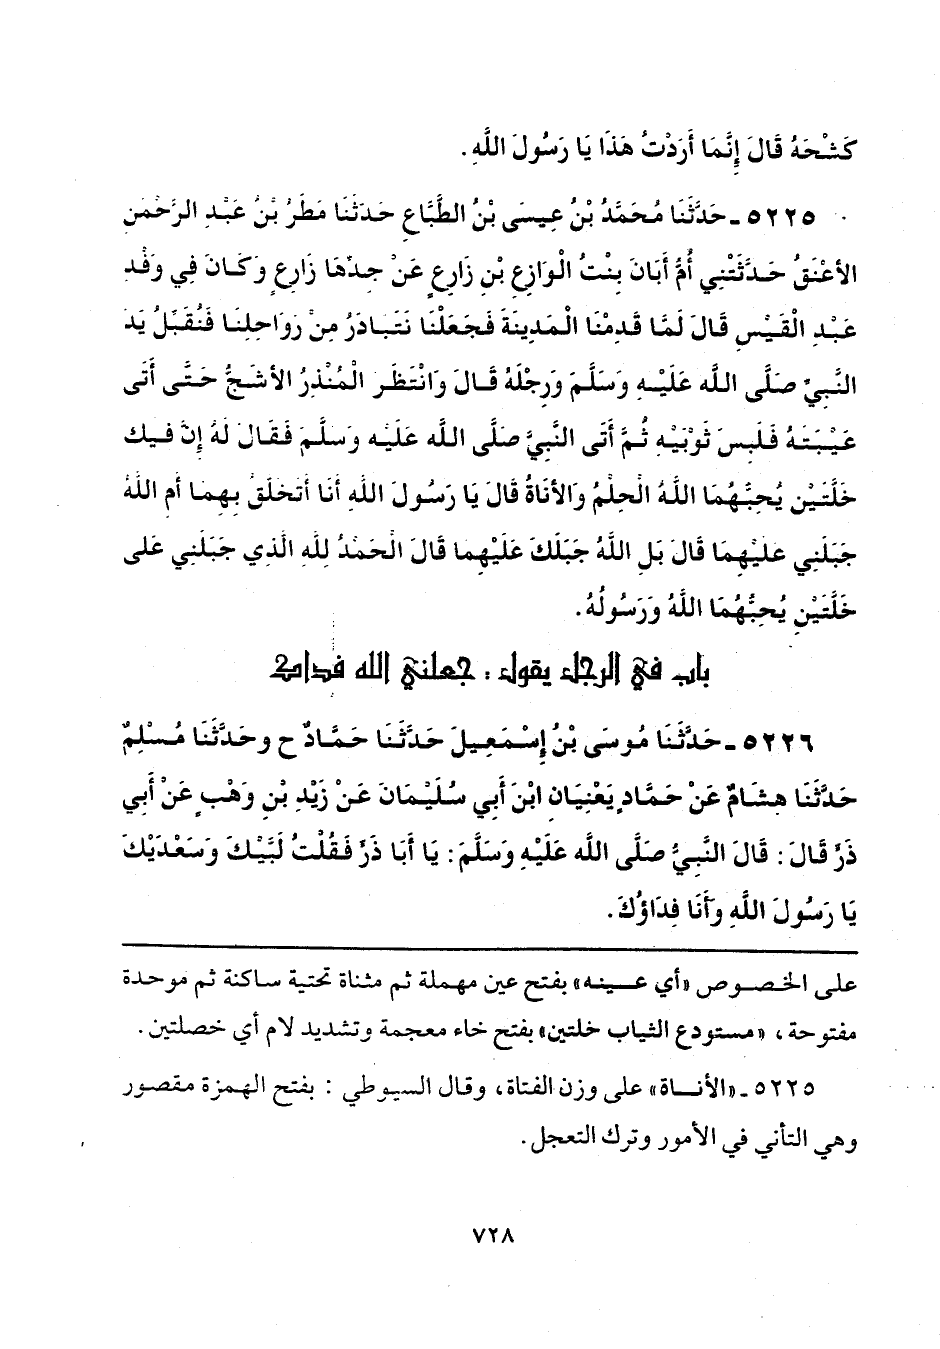 كَشْحَهُ قَالَ إِنَّمَا أَرَدْتُ هَذَا يَا رَسُولَ اللَّهِ.
٥٢٢٥ ـ حَدَّثَنَا مُحَمَّدُ بْنُ عِيسَى بْنُ الطَّبَّاعِ حَدَّثَنَا مَطَرُ بْنُ عَبْدِ الرَّحْمٰنِ
الأَعْنَقُ حَدَّثَتْنِي أُمُّ أَبَانَ بِنْتُ الْوَازِعِ بْنِ زَارِعٍ عَنْ جِدِّهَا زَارِعٍ وَكَانَ فِي وَفْدِ
عَبْدِ الْقَيْسِ قَالَ لَمَّا قَدِمْنَا الْمَدِينَةَ فَجَعَلْنَا نَتَبَادَرُ مِنْ رَوَاحِلِنَا فَنُقَبِّلُ يَدَ
النَّبِيِّ صَلَّى اللَّه عَلَيْهِ وَسَلَّمَ وَرِجْلَهُ قَالَ وَانْتَظَرَ الْمُنْذِرُ الأَشَجُّ حَتَّى أَتَى
عَيْبَتَهُ فَلَبِسَ ثَوْبَيْهِ ثُمَّ أَتَى النَّبِيَّ صَلَّى اللَّه عَلَيْهِ وَسَلَّمَ فَقَالَ لَهُ إِنَّ فِيكَ
خَلَّتَيْنِ يُحِبُّهُمَا اللَّهُ الْحِلْمُ وَالأَنَاةُ قَالَ يَا رَسُولَ اللَّهِ أَنَا أَتَخَلَّقُ بِهِمَا أَمِ اللَّهُ
جَبَلَنِي عَلَيْهِمَا قَالَ بَلِ اللَّهُ جَبَلَكَ عَلَيْهِمَا قَالَ الْحَمْدُ لِلَّهِ الَّذِي جَبَلَنِي عَلَى
خَلَّتَيْنِ يُحِبُّهُمَا اللَّهُ وَرَسُولُهُ.
باب في الرجل يقول : جعلني الله فداك
٥٢٢٦ ـ حَدَّثَنَا مُوسَى بْنُ إِسْمَعِيلَ حَدَّثَنَا حَمَّادٌ ح وحَدَّثَنَا مُسْلِمٌ
حَدَّثَنَا هِشَامٌ عَنْ حَمَّادٍ يَعْنِيَانِ ابْنَ أَبِي سُلَيْمَانَ عَنْ زَيْدِ بْنِ وَهْبٍ عَنْ أَبِي
ذَرٍّ قَالَ : قَالَ النَّبِيُّ صَلَّى اللَّه عَلَيْهِ وَسَلَّمَ : يَا أَبَا ذَرٍّ فَقُلْتُ لَبَّيْكَ وَسَعْدَيْكَ
يَا رَسُولَ اللَّهِ وَأَنَا فِدَاؤُكَ.
على الخصوص «أي عـيـنه» بفتح عين مهملة ثم مثناة تحتية ساكنة ثم موحدة
مفتوحة ، «مستودع الثياب خلتين» بفتح خاء معجمة وتشديد لام أي خصلتين.
٥٢٢٥ ـ «الأنـاة» على وزن الفتاة، وقال السيوطي : بفتح الهمزة مقصور
وهي التأني في الأمور وترك التعجل.
٧٢٨